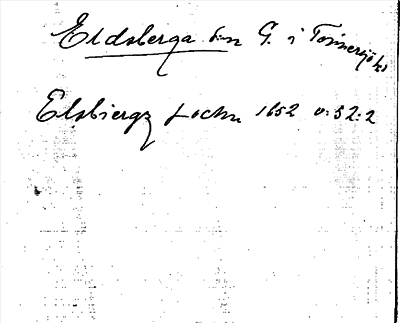 Eldsberga sn G. i Tönnersjö hd
Elsbierg Sochn 1652 v: 52: 2